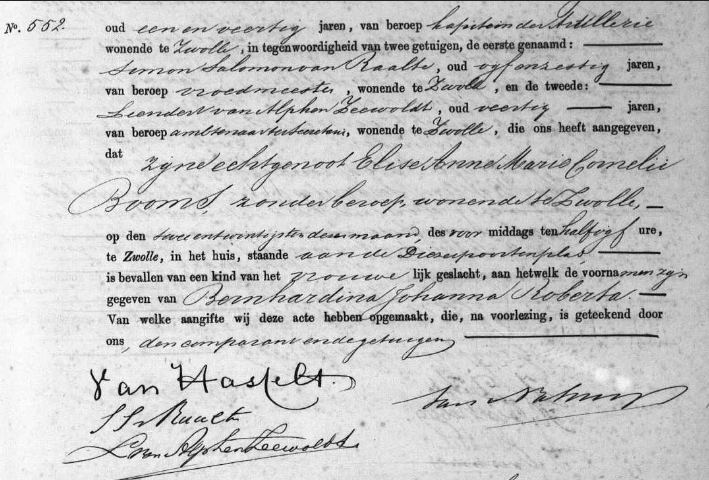 No. 552. oud een en veertig jaren, van beroep kapitein der Artillerie
wonende te Zwolle, in tegenwoordigheid van twee getuigen, de eerste genaamd:
Simon Salomon van Raalte, oud vyf en zestig jaren,
van beroep vroedmeester, wonende te Zwolle, en de tweede:
Leendert van Alphen Zeewoldt, oud veertig jaren,
van beroep ambtenaar ter Secretarie, wonende te Zwolle, die ons heeft aangegeven,
dat zyne echtgenoot Elise Anne Marie Cornelie
Booms, zonder beroep, wonende te Zwolle,
op den twee en twintigsten dezer maand des voor middags ten half vyf ure,
te Zwolle, in het huis, staande aan de Diezerpoortenplas
is bevallen van een kind van het vrouwe lijk geslacht, aan hetwelk de voornamen zyn
gegeven van Bernhardina Johanna Roberta.
Van welke aangifte wij deze acte hebben opgemaakt, die, na voorlezing, is geteekend door
ons, den comparant en de getuigen
Van Hasselt.
S S v Raalte
L van Alphen Zeewoldt